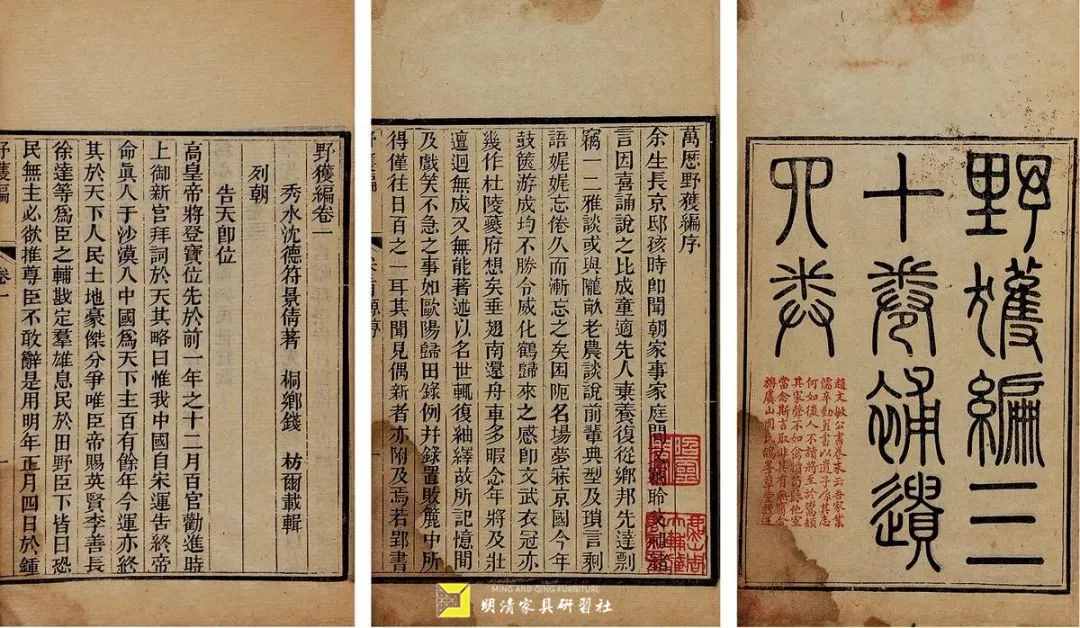 野獲編三
十卷補遺
四卷
趙文敏公書卷末云吾家業
儒辛勤置書以遺子孫其志
何如後人不讀將至於鬻頹
其家聲不如禽犢苟歸他室
當念斯言取非其有毋寧舍
旃虞山周氏鴿峯草堂
萬歷野獲編序
余生長京邸孩時即聞朝家事家庭間聆緒
言因喜誦說之比成童適先人棄養復從鄉邦先達剽
竊一二雅談或與隴畝老農談說前輩典型及瑣言剩
語娓娓忘倦久而漸忘之矣困阨名場夢寐京國今年
鼓篋游成均不勝令威化鶴歸來之感即文武衣冠亦
幾作杜陵夔府想矣垂翅南還舟車多暇念年將及壯
邅迴無成又無能著述以名世輒復紬繹故所記憶間
及戲笑不急之事如歐陽歸田錄例并錄置敗簏中所
得僅往日百之一耳其聞見偶新者亦附及焉若郢書
野獲編卷一
秀水沈德符景倩著 桐鄉錢 枋爾載輯
列朝
告天即位
高皇帝將登寶位先於前一年之十二月百官勸進時
上御新宮拜詞於天其略曰惟我中國自宋運告終帝
命眞人于沙漠入中國爲天下主百有餘年今運亦終
其於天下人民土地豪傑分爭唯臣帝賜英賢李善長
徐達等爲臣之輔戡定羣雄息民於田野臣下皆曰恐
民無主必欲推尊臣不敢辭是用明年正月四日於鍾
野獲編 卷一
MING AND QING FURNITURE
明清家具研習社